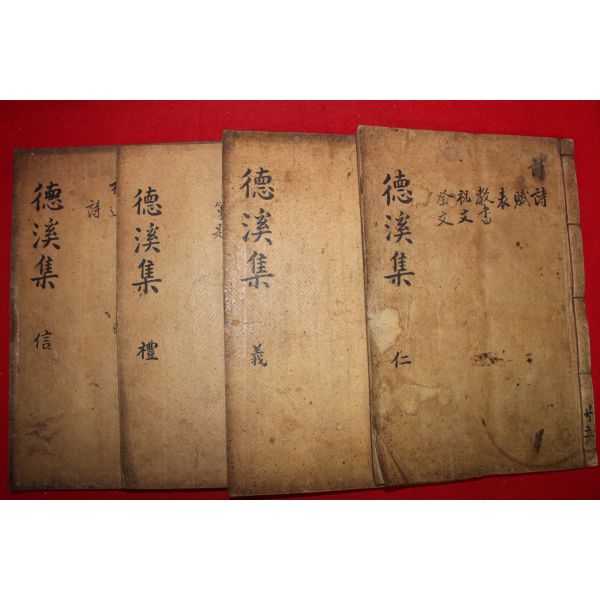 詩
賦
表
教書
祝文
祭文
德溪集
仁
德溪集
義
德溪集
禮
詩
德溪集
信